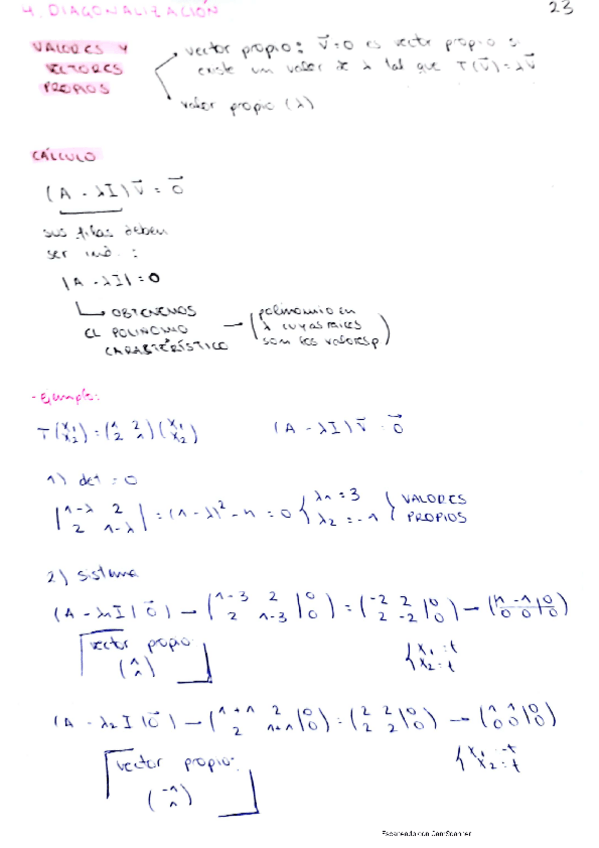 4. DIAGONALIZACIÓN 23
VALORES Y VECTORES PROPIOS
vector propio: v⃗=0 es vector propio si
existe un valor de λ tal que T(v⃗)=λv⃗
valor propio (λ)
CÁLCULO
(A - λI)v⃗ = 0⃗
sus filas deben
ser ind.:
|A - λI| = 0
OBTENEMOS
EL POLINOMIO
CARACTERÍSTICO
(polinomio en
λ cuyas raíces
son los valores p)
- Ejemplo:
T(x₁ x₂) = (1 2 2 1)(x₁ x₂) (A - λI)v⃗ = 0⃗
1) det = 0
|1-λ 2 2 1-λ| = (1-λ)² - 4 = 0 { λ1 = 3 λ2 = -1 } VALORES PROPIOS
2) sistema
(A - λ1I | 0⃗) → (1-3 2 2 1-3 | 0 0) = (-2 2 2 -2 | 0 0) → (1 -1 0 0 | 0 0)
vector propio:
(1 1)
{ x₁ = t x₂ = t
(A - λ2I | 0⃗) → (1+1 2 2 1+1 | 0 0) = (2 2 2 2 | 0 0) → (1 1 0 0 | 0 0)
vector propio:
(-1 1)
{ x₁ = -t x₂ = t
Escaneado con CamScanner